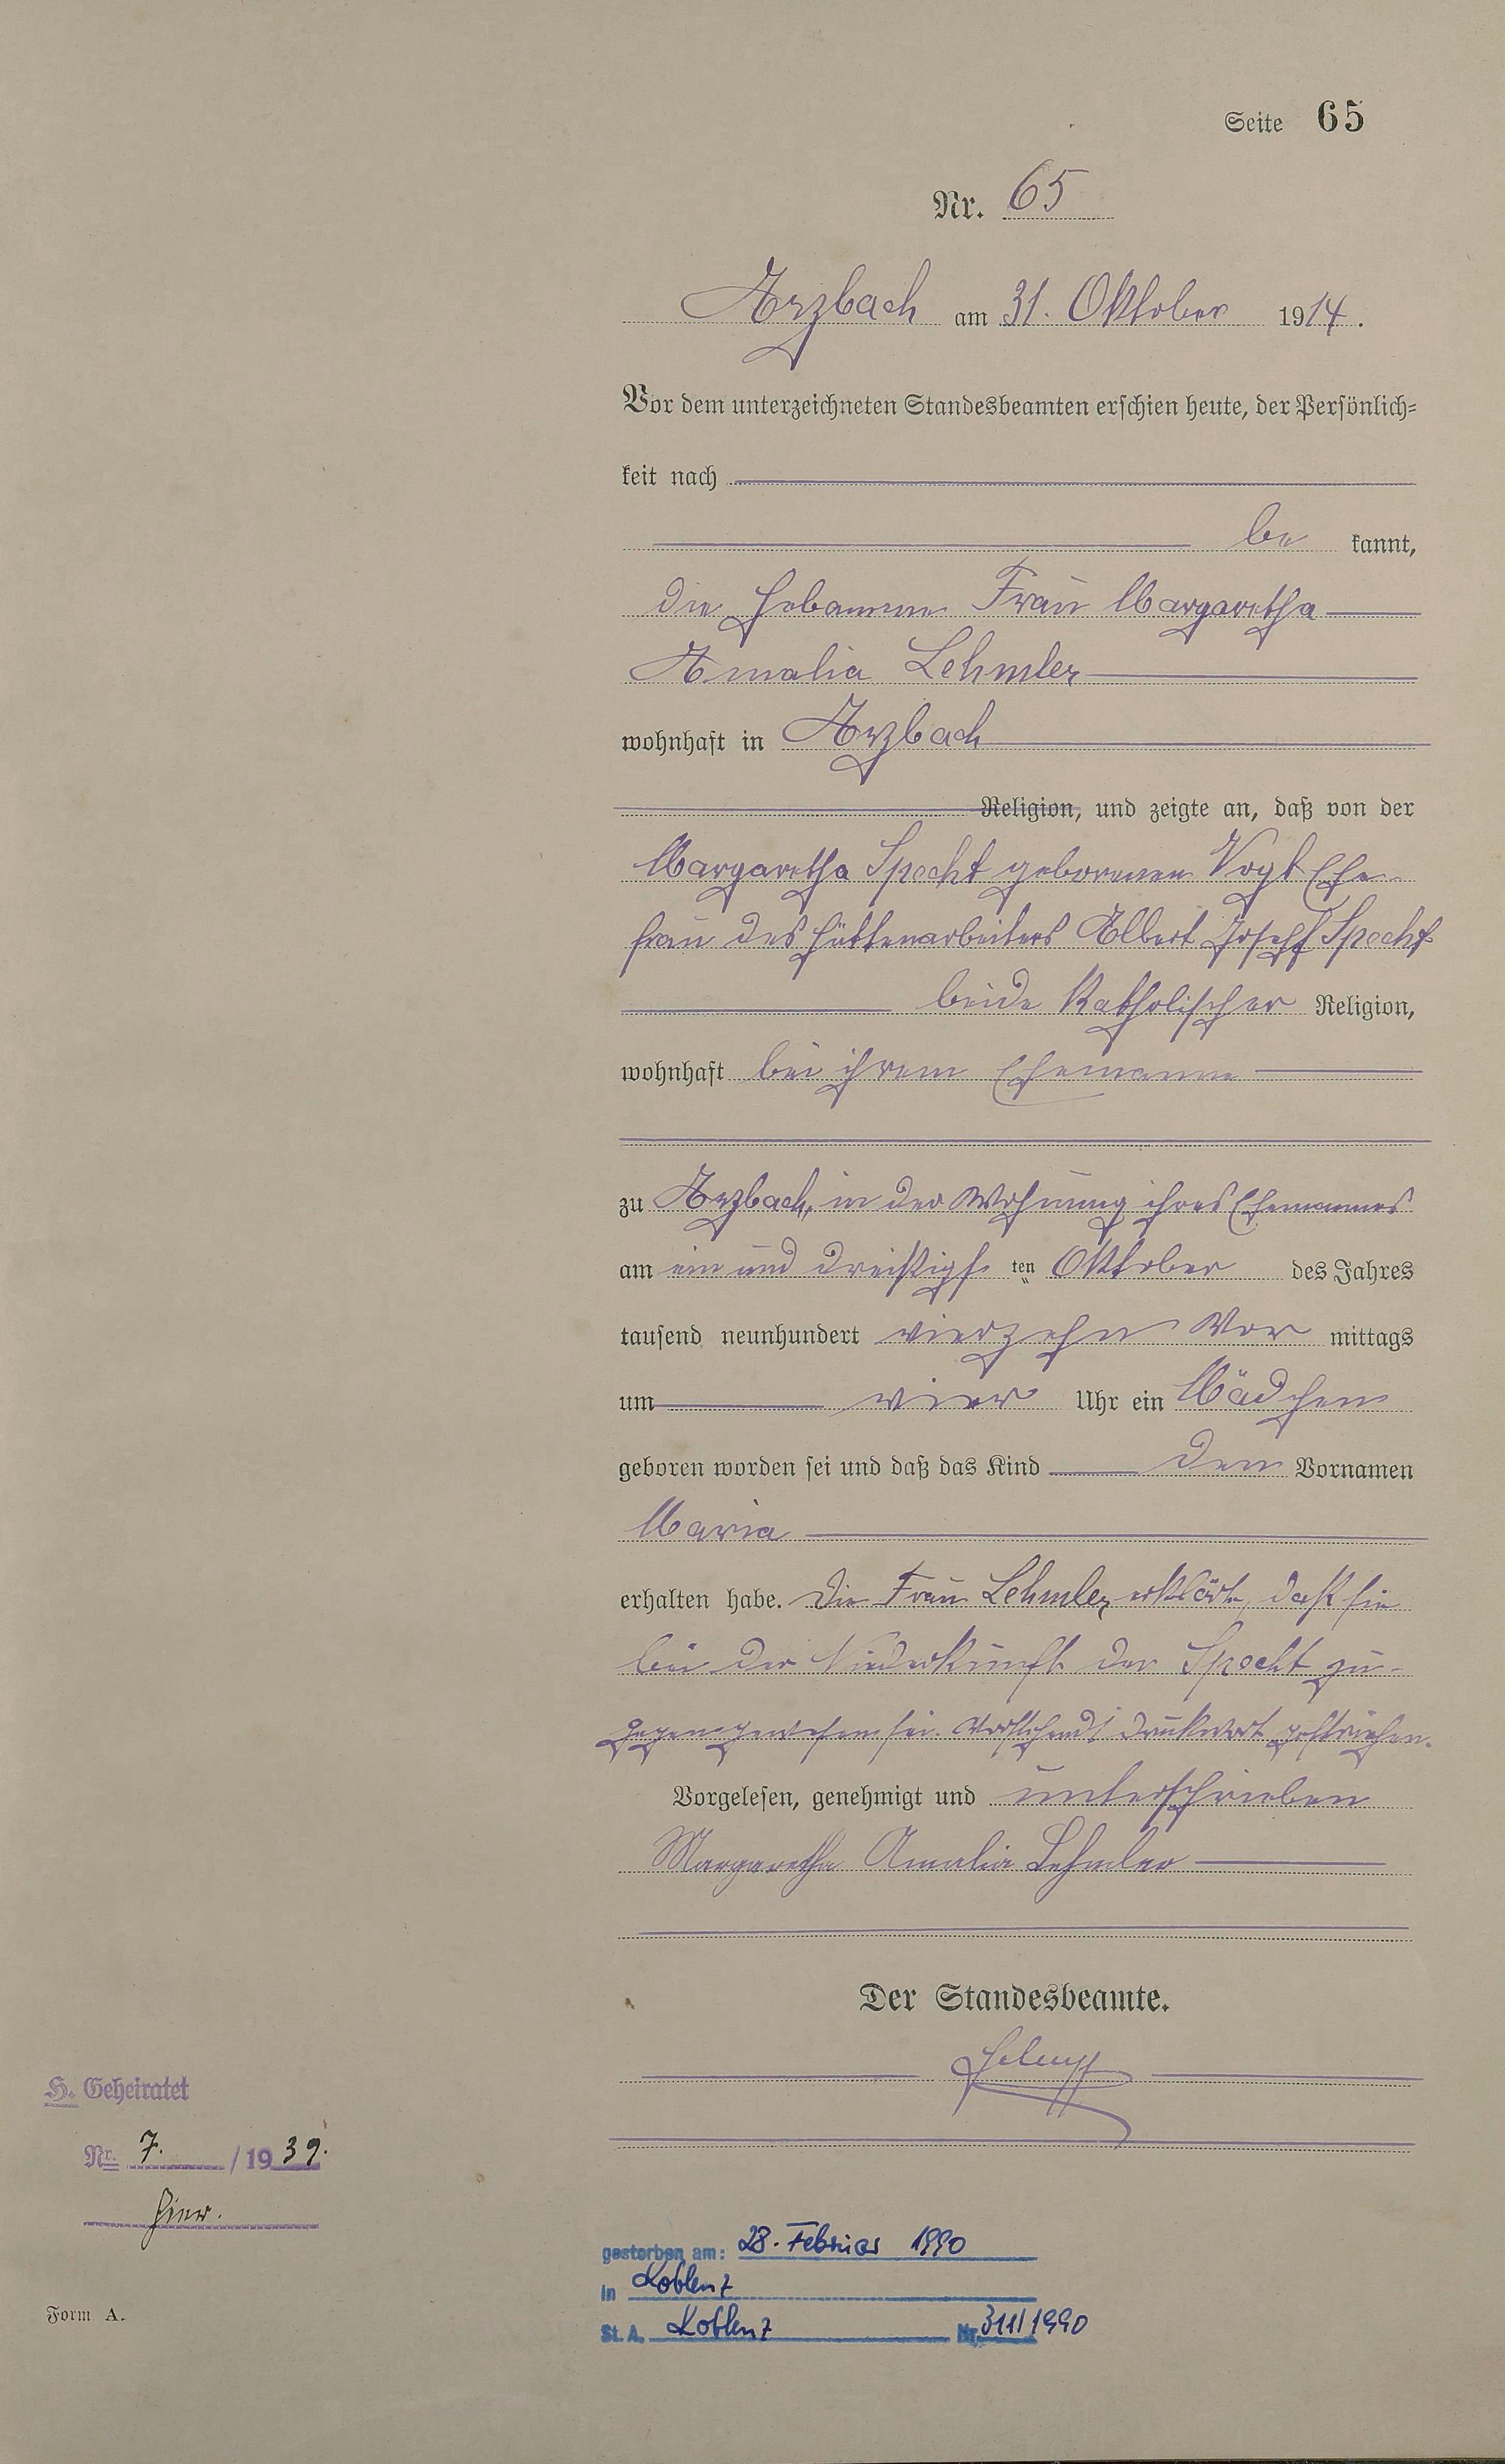 Seite 65
Nr. 65
Arzbach am 31. Oktober 1914.
Vor dem unterzeichneten Standesbeamten erschien heute, der Persönlich=
keit nach
be kannt,
die Hebamme Frau Margaretha
Amalia Lehmler
wohnhaft in Arzbach
Religion, und zeigte an, daß von der
Margaretha Specht geborenen Vogt Ehe-
frau des Hüttenarbeiters Albert Joseph Specht
beide Katholischer Religion,
wohnhaft bei ihrem Ehemanne
zu Arzbach, in der Wohnung ihres Ehemannes
am ein und dreißigs ten Oktober des Jahres
tausend neunhundert vierzehn Vor mittags
um vier Uhr ein Mädchen
geboren worden sei und daß das Kind den Vornamen
Maria
erhalten habe. Die Frau Lehmler erklärte, daß sie
bei der Niederkunft der Specht zu-
gegen gewesen sei. Vorstehend 1 Druckwort gestrichen.
Vorgelesen, genehmigt und unterschrieben
Margaretha Amalia Lehmler
Der Standesbeamte.
H. Geheiratet
Nr. 7. /1939.
hier.
gestorben am: 28. Februar 1990
in Koblenz
St. A. Koblenz Nr. 311/1990
Form A.